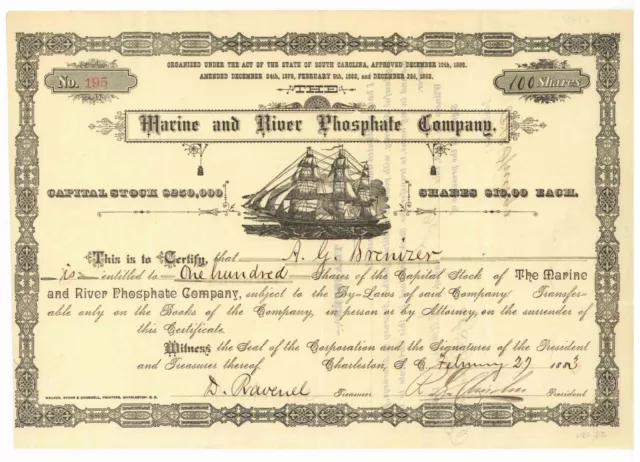 ORGANIZED UNDER THE ACT OF THE STATE OF SOUTH CAROLINA, APPROVED DECEMBER 10th, 1880.
AMENDED DECEMBER 24th, 1879, FEBRUARY 9th, 1882, and DECEMBER 22d, 1882.
No. 195
100 Shares
THE
Marine and River Phosphate Company.
CAPITAL STOCK $250,000
SHARES $10.00 EACH.
This is to Certify, that A. G. Brenizer
is entitled to One hundred Shares of the Capital Stock of The Marine
and River Phosphate Company, subject to the By-Laws of said Company Transfer-
able only on the Books of the Company, in person or by Attorney, on the surrender of
this Certificate.
Witness the Seal of the Corporation and the Signatures of the President
and Treasurer thereof. Charleston, S. C. February 27 1883
D. Ravenel Treasurer President
WALKER, EVANS & COGSWELL, PRINTERS, CHARLESTON, S. C.